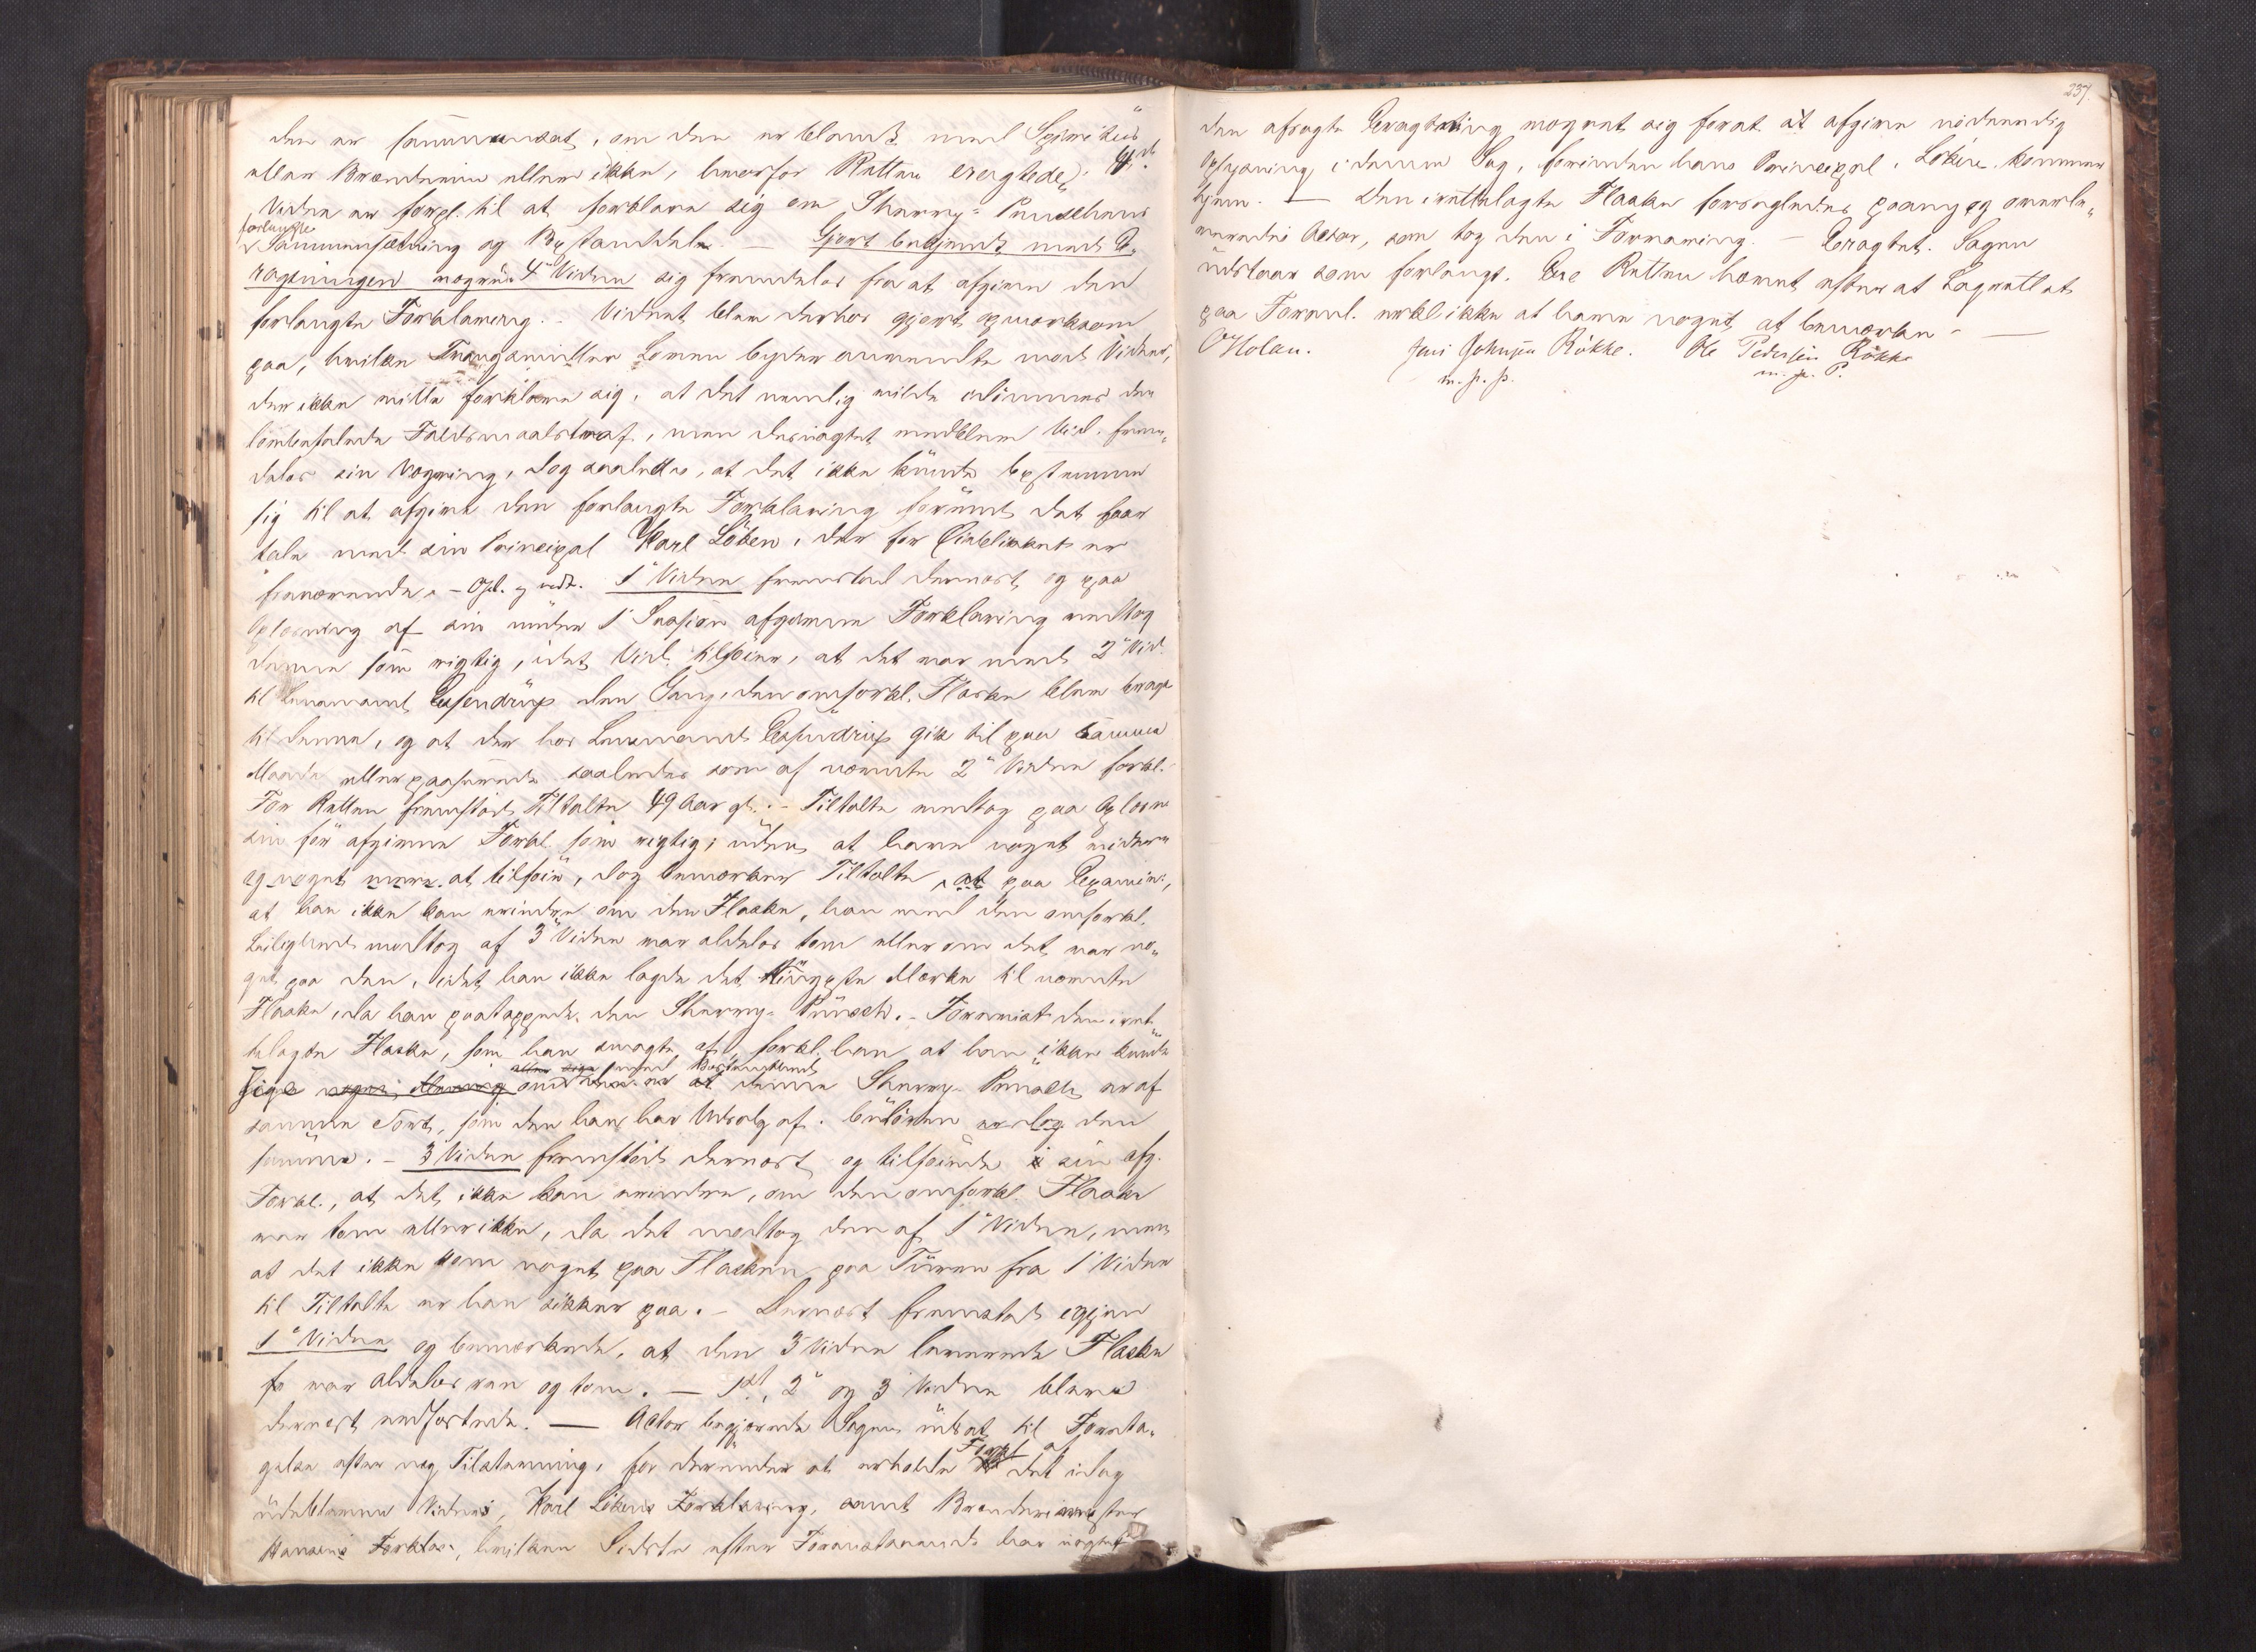 den er sammensat, om den er blandt med Spiritus
eller Brændeviin eller ikke, hvorfor Retten eragtede: 4de
Vidne er forpl. til at forklare sig om Sherry-Punschens
forlangte
Sammensætning og Bestanddele. — Gjort bekjendt med E-
ragtningen vægrede 4de Vidne sig fremdeles fra at afgive den
forlangte Forklaring. - Vidnet blev derhos gjort opmærksom
paa, hvilke Tvangsmidler Loven byder anvendte mod Vidner,
der ikke ville forklare sig, at det nemlig vilde idømmes den
lovbefalede Faldsmaalstraf, men desuagtet vedblev Vid. frem-
deles sin Vægring, dog saaledes, at det ikke kunde bestemme
sig til at afgive den forlangte Forklaring førend det faar
tale med sin Principal Karl Löken, der for Øieblikket er
fraværende. - Opl. og vedt. 1ste Vidne fremstod dernæst, og paa
Oplæsning af sin under 1ste Session afgivne Forklaring vedtog
denne som rigtig, idet Vid. tilføier, at det var med 2det Vid.
til Lensmand Essendrup den Gang, den omforkl. Flaske blev bragt
til denne, og at der hos Lensmand Essendrup gik til paa samme
Maade eller paafølgende saaledes som af nævnte 2det Vidne forkl.
For Retten fremstod Tiltalte 49 Aar gl. - Tiltalte vedtog paa Oplæsn.
sin før afgivne Forkl. som rigtig, uden at have noget videre
og noget mere at tilføie, dog bemærker Tiltalte, at paa Examin.,
at han ikke kan erindre om den Flaske, han ved den omforkl.
Leilighed modtog af 3die Vidne var aldeles tom eller om det var no-
get paa den, idet han ikke lagde det ringeste Mærke til nævnte
Flaske, da han paatappede den Sherry-Punsch. - Forevist den iret-
telagte Flaske, som han smagte af, forkl. han at han ikke kunde
sige nogen Mening om denne er at denne Sherry-Punsch er af
samme Sort, som den han har Udsalg af. Couløren er dog den
samme. - 3die Vidne fremstod dernæst og tilføiede i sin afg.
Forkl., at det ikke kan erindre, om den omforkl. Flaske
var tom eller ikke, da det modtog den af 1ste Vidne, men
at det ikke kom noget paa Flasken paa Turen fra 1ste Vidne
til Tiltalte er han sikker paa. - Dernæst fremstod igjen
1ste Vidne og bemærkede, at den 3die Vidne leverede Flaske
var aldeles ren og tom. — 1ste, 2det og 3die Vidne bleve
dernæst eedfæstede. — Actor begjærede Sagen udsat til Foreta-
gelse efter ny Tilstævning, for derunder at erholde Forkl. af det idag
udeblevne Vidnes, Karl Lökens Forklaring, samt Brænderimester
Hansens Forklar., hvilken Sidste efter Forestaaende har negtet
237.
den afsagte Eragtning vægret sig for at afgive nødvendig
Oplysning i denne Sag, førinden hans Principal, Löken, kommer
hjem. — Den irettelagte Flaske forsegledes paany og overle-
veredes Actor, som tog den i Forvaring. — Eragtet. Sagen
udstaar som forlangt. Derpaa Retten hævet efter at Lagrettet
paa Foresp. erkl. ikke at have noget at bemærke. —
O Holan. Jens Johnsen Rökke. Ole Pedersen Rökke
m. p. p. m. p. P.